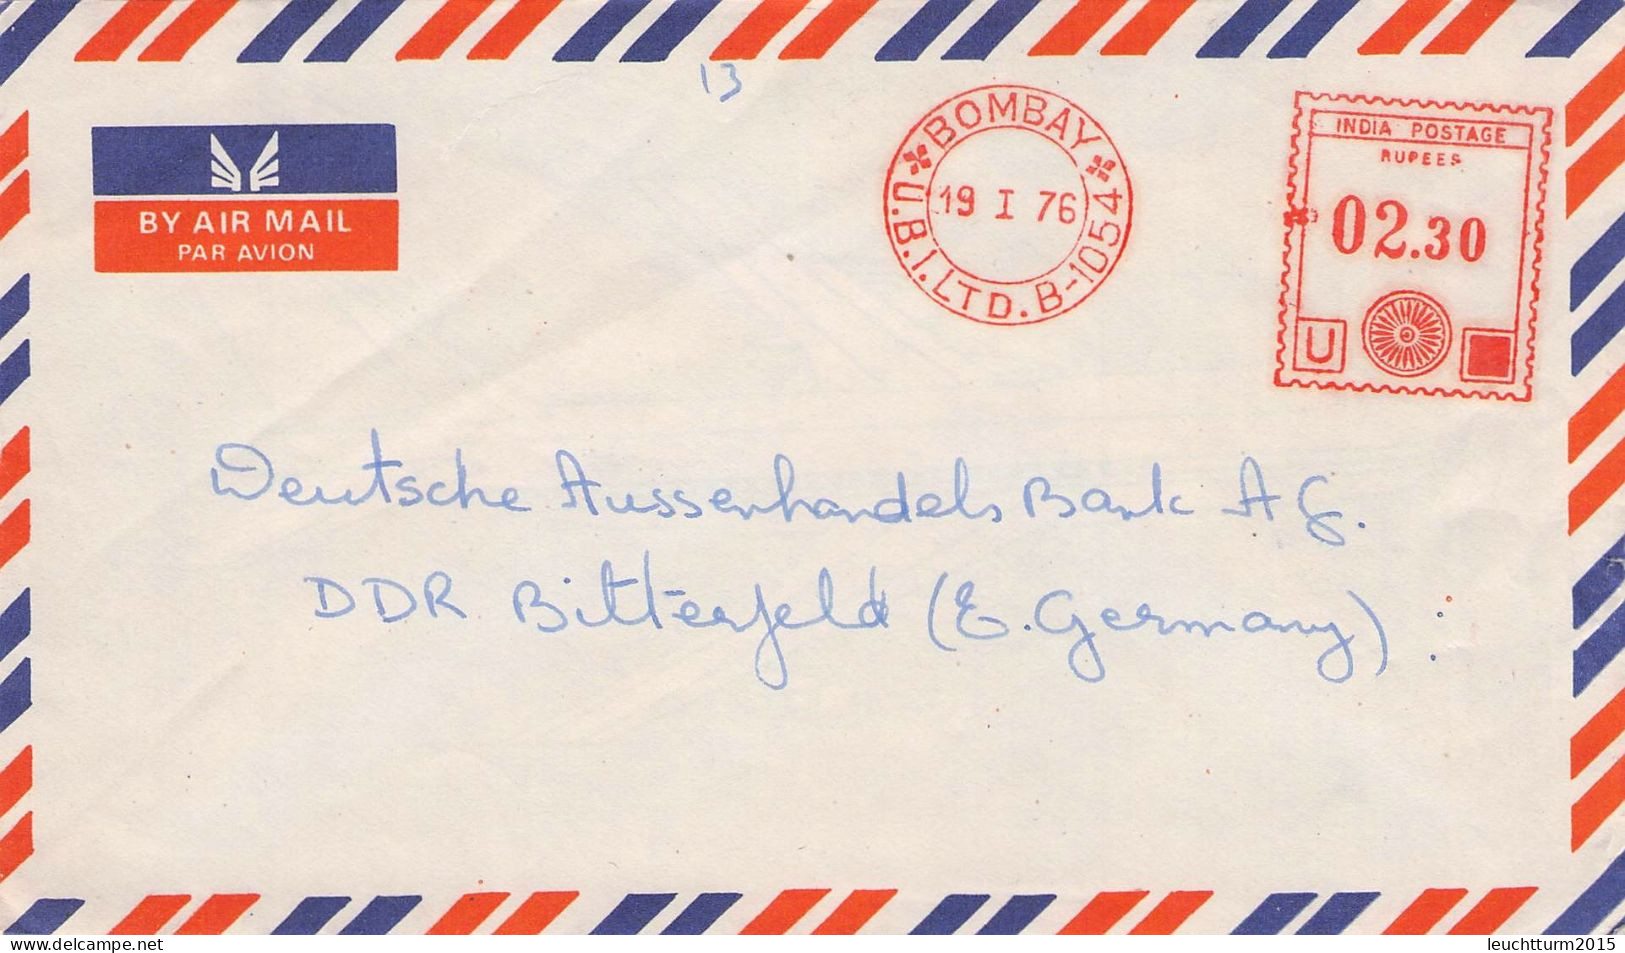 13
BY AIR MAIL
PAR AVION
BOMBAY
19 I 76
U.B.I. LTD. B-1054
INDIA POSTAGE
RUPEES
02.30
U
Deutsche Aussenhandels Bank AG.
DDR Bitterfeld (E. Germany) :
www.delcampe.net
leuchtturm2015